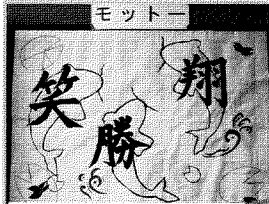 モットー
笑
勝
翔